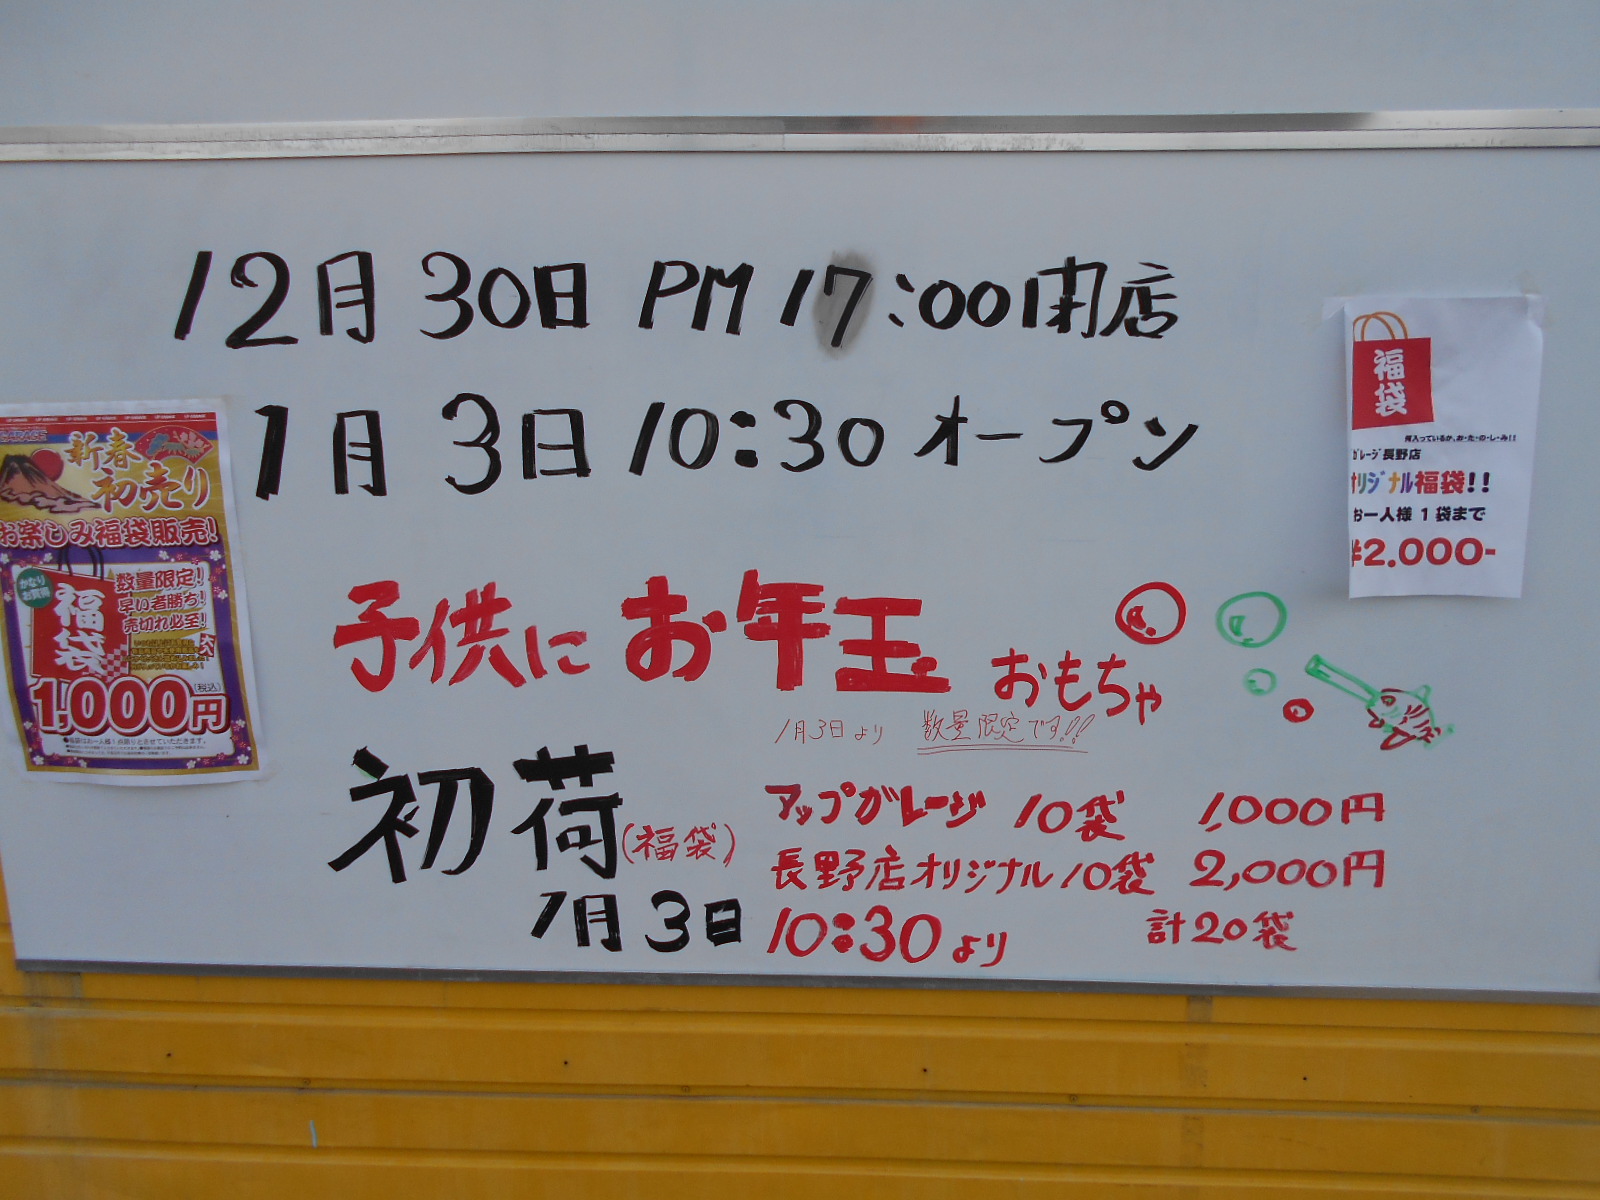 12月30日 PM 17:00閉店
1月3日 10:30 オープン
子供に お年玉 おもちゃ
1月3日より 数量限定です!!
初荷(福袋)
1月3日
アップガレージ 10袋 1,000円
長野店オリジナル 10袋 2,000円
10:30より 計20袋
GARAGE
新春
初売り
お楽しみ福袋販売!
かなり
お買得
福袋
数量限定!
早い者勝ち!
売切れ必至!
1,000円
(税込)
福袋
何入っているか、お・た・の・し・み!!
ガレージ長野店
オリジナル福袋!!
お一人様 1 袋まで
¥2.000-